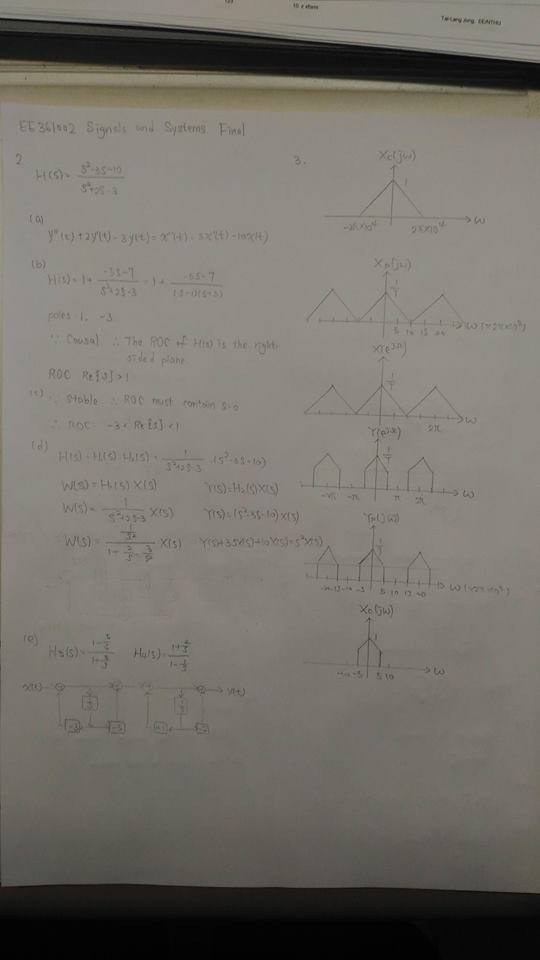 123
10 z xform
Tai-Lang Jong, EE/NTHU
EE361002 Signals and Systems Final
2
H(s) = (s²-3s-10)/(s²+2s-3)
(a)
y''(t)+2y'(t)-3y(t)=x''(t)-3x'(t)-10x(t)
(b)
H(s)=1+ (-5s-7)/(s²+2s-3) = 1+ (-5s-7)/((s-1)(s+3))
poles: 1, -3
∵ Causal ∴ The ROC of H(s) is the right-
sided plane
ROC Re{s}>1
(c) ∵ Stable ∴ ROC must contain s=0
∴ ROC: -3<Re{s}<1
(d)
H(s)=H₁(s)·H₂(s)= 1/(s²+2s-3) ·(s²-3s-10)
W(s)=H₁(s)X(s) Y(s)=H₂(s)X(s)
W(s)= 1/(s²+2s-3) X(s) Y(s)=(s²-3s-10)X(s)
W(s)= (1/s²)/(1+2/s-3/s²) X(s) Y(s)+3sX(s)+10X(s)=s²X(s)
(e)
H₃(s)= H₄(s)=
x(t) y(t)
3.
Xc(jω)
1
ω
Xp(jω)
1/T
5 10 15 20
X(e^jΩ)
1/T
2π ω
Y(e^jΩ)
1/T
-2π -π π 2π ω
Yp(jω)
1/T
-20 -15 -10 -5 5 10 15 20
1
-10 -5 5 10 ω